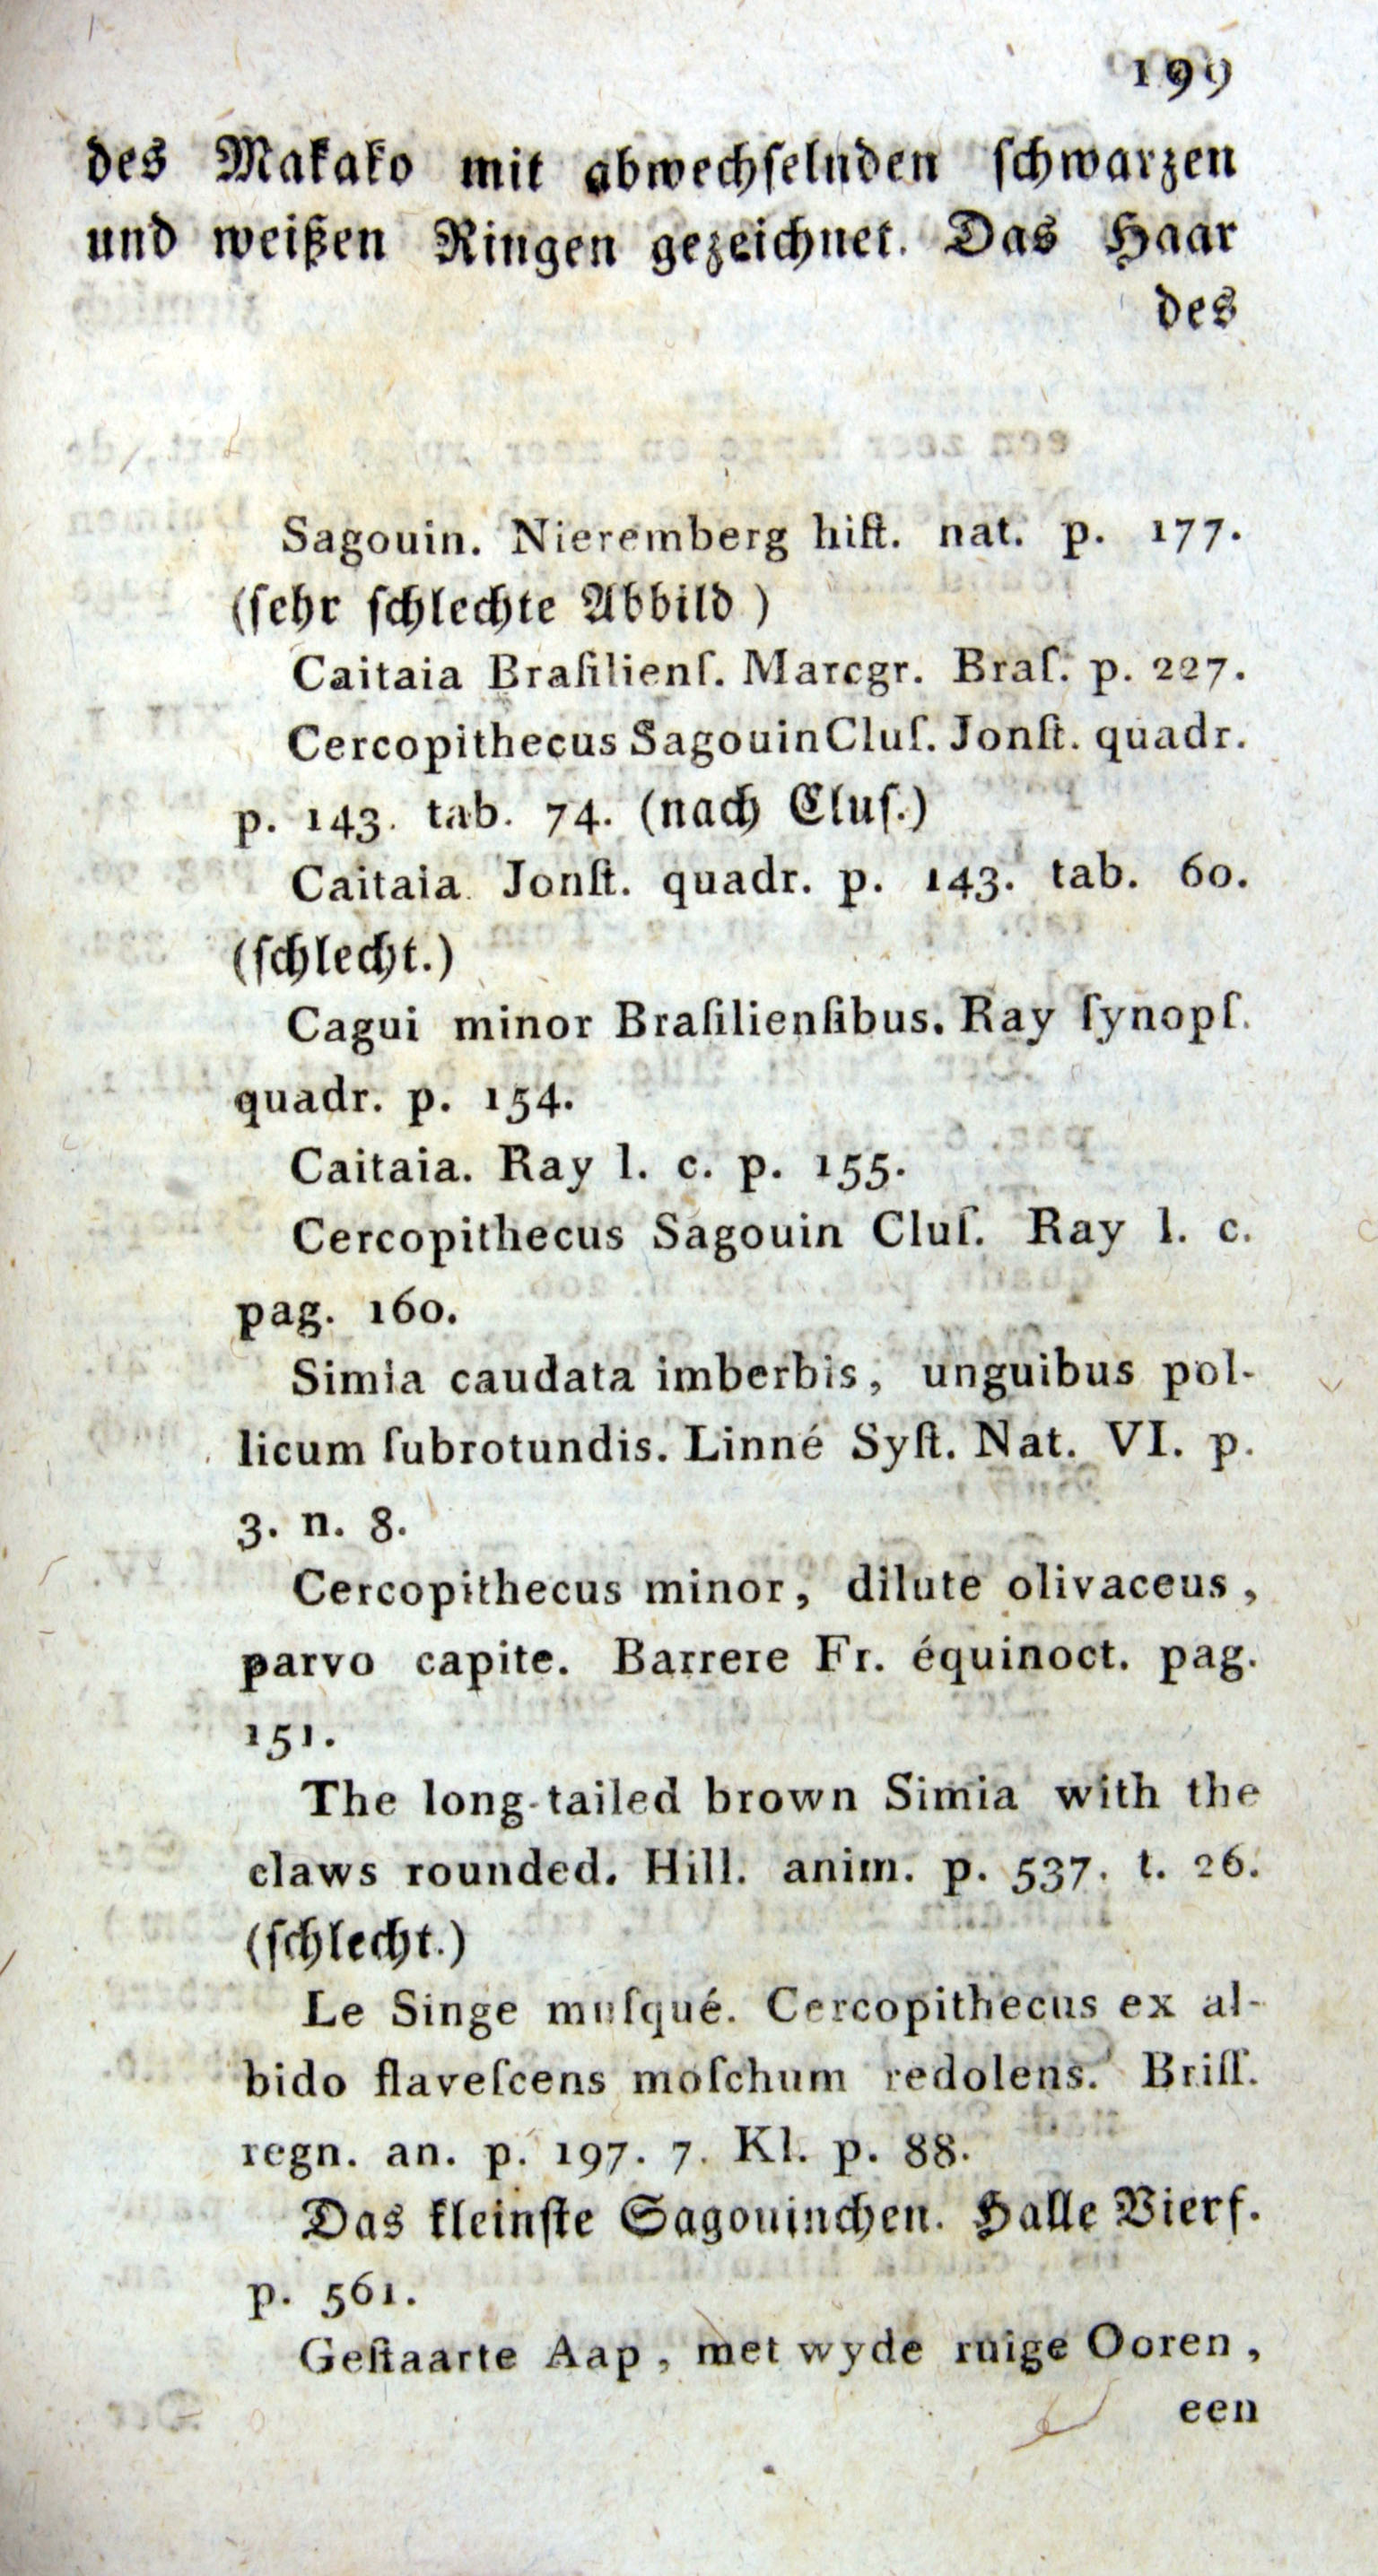 199
des Makako mit abwechſelnden ſchwarzen
und weißen Ringen gezeichnet. Das Haar
des
Sagouin. Nieremberg hiſt. nat. p. 177.
(ſehr ſchlechte Abbild )
Caitaia Braſilienſ. Marcgr. Braſ. p. 227.
Cercopithecus Sagouin Cluſ. Jonſt. quadr.
p. 143. tab. 74. (nach Cluſ.)
Caitaia. Jonſt. quadr. p. 143. tab. 60.
(ſchlecht.)
Cagui minor Braſilienſibus. Ray ſynopſ.
quadr. p. 154.
Caitaia. Ray l. c. p. 155.
Cercopithecus Sagouin Cluſ. Ray l. c.
pag. 160.
Simia caudata imberbis, unguibus pol-
licum ſubrotundis. Linné Syſt. Nat. VI. p.
3. n. 8.
Cercopithecus minor, dilute olivaceus,
parvo capite. Barrere Fr. équinoct. pag.
151.
The long-tailed brown Simia with the
claws rounded. Hill. anim. p. 537. t. 26.
(ſchlecht.)
Le Singe muſqué. Cercopithecus ex al-
bido flaveſcens moſchum redolens. Briſſ.
regn. an. p. 197. 7. Kl. p. 88.
Das kleinſte Sagouinchen. Halle Vierf.
p. 561.
Geſtaarte Aap, met wyde ruige Ooren,
een